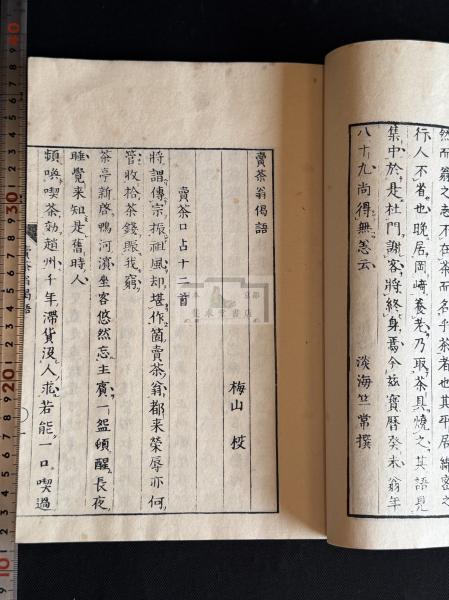 然而翁之志不在茶而名乎茶者也其平居綿密之
行人不省也晩居岡﨑養老乃取茶具燒之其語見
集中於是杜門謝客將終身焉今玆寶曆癸未翁年
八十九尚得無恙云
淡海竺常撰
賣茶翁偈語
梅山 校
賣茶口占十二首
將謂傳宗振祖風却堪作箇賣茶翁都來榮辱亦何
管收拾茶錢賑我窮
茶亭新啓鴨河濱坐客悠然忘主賓一盌頓醒長夜
睡覺來知是舊時人
頻喚喫茶効趙州千年滯貨没人求若能一口喫過
賣茶翁偈語
一
集泉堂書店
10
20
30
40